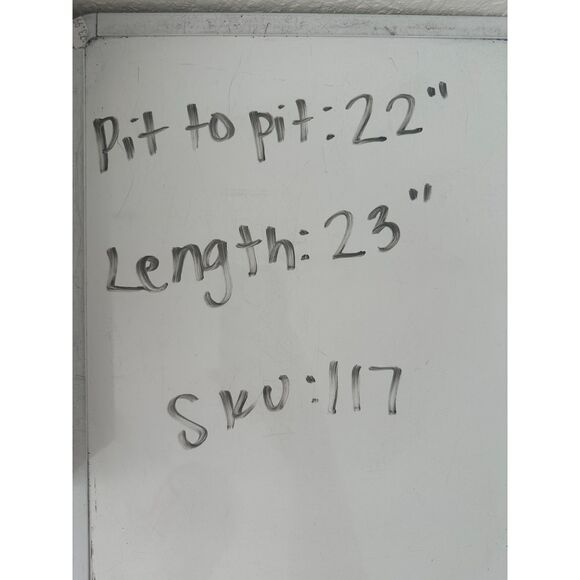 Pit to pit: 22"
Length: 23"
SKU: 117